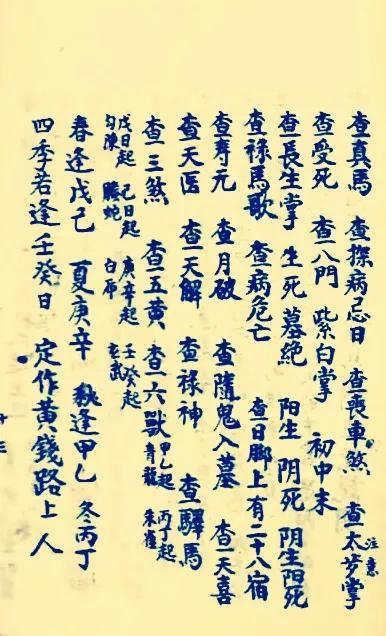 查真馬 查探病忌日 查喪車煞 查太岁掌 注意
查受死 查八門 紫白掌 初中末
查長生掌 生死墓絕 阳生阴死 阴生阳死
查祿馬歌 查病危亡 查日脚上有二十八宿
查寿元 查月破 查隨鬼入墓 查天喜
查天医 查天解 查祿神 查驛馬
查三煞 查五黄 查六獸 甲乙起青龍 丙丁起朱雀
戊日起勾陳 己日起騰蛇 庚辛起白虎 壬癸起玄武
春逢戊己 夏庚辛 秋逢甲乙 冬丙丁
四季若逢壬癸日 定作黄錢路上人
十三